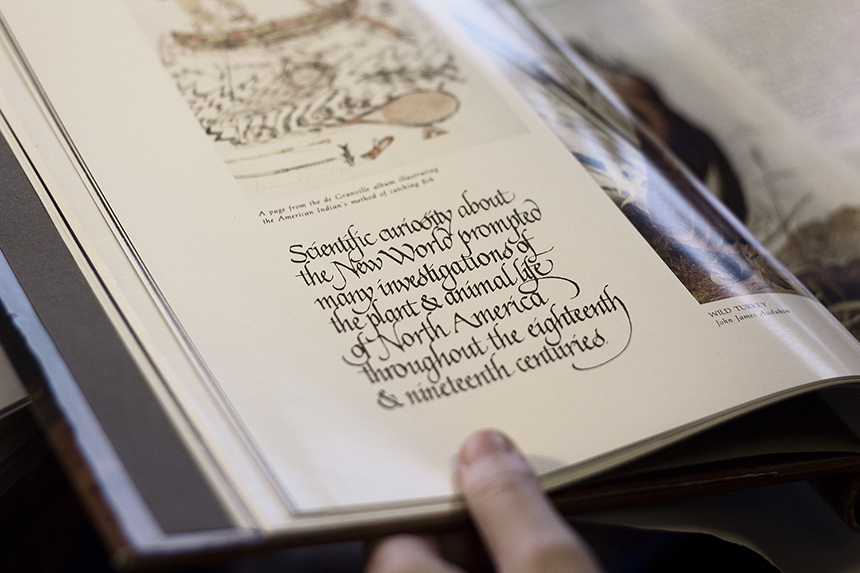 A page from the de Granville album illustrating
the American Indian's method of catching fish
Scientific curiosity about
the New World prompted
many investigations of
the plant & animal life
of North America
throughout the eighteenth
& nineteenth centuries.
WILD TURKEY
John James Audubon